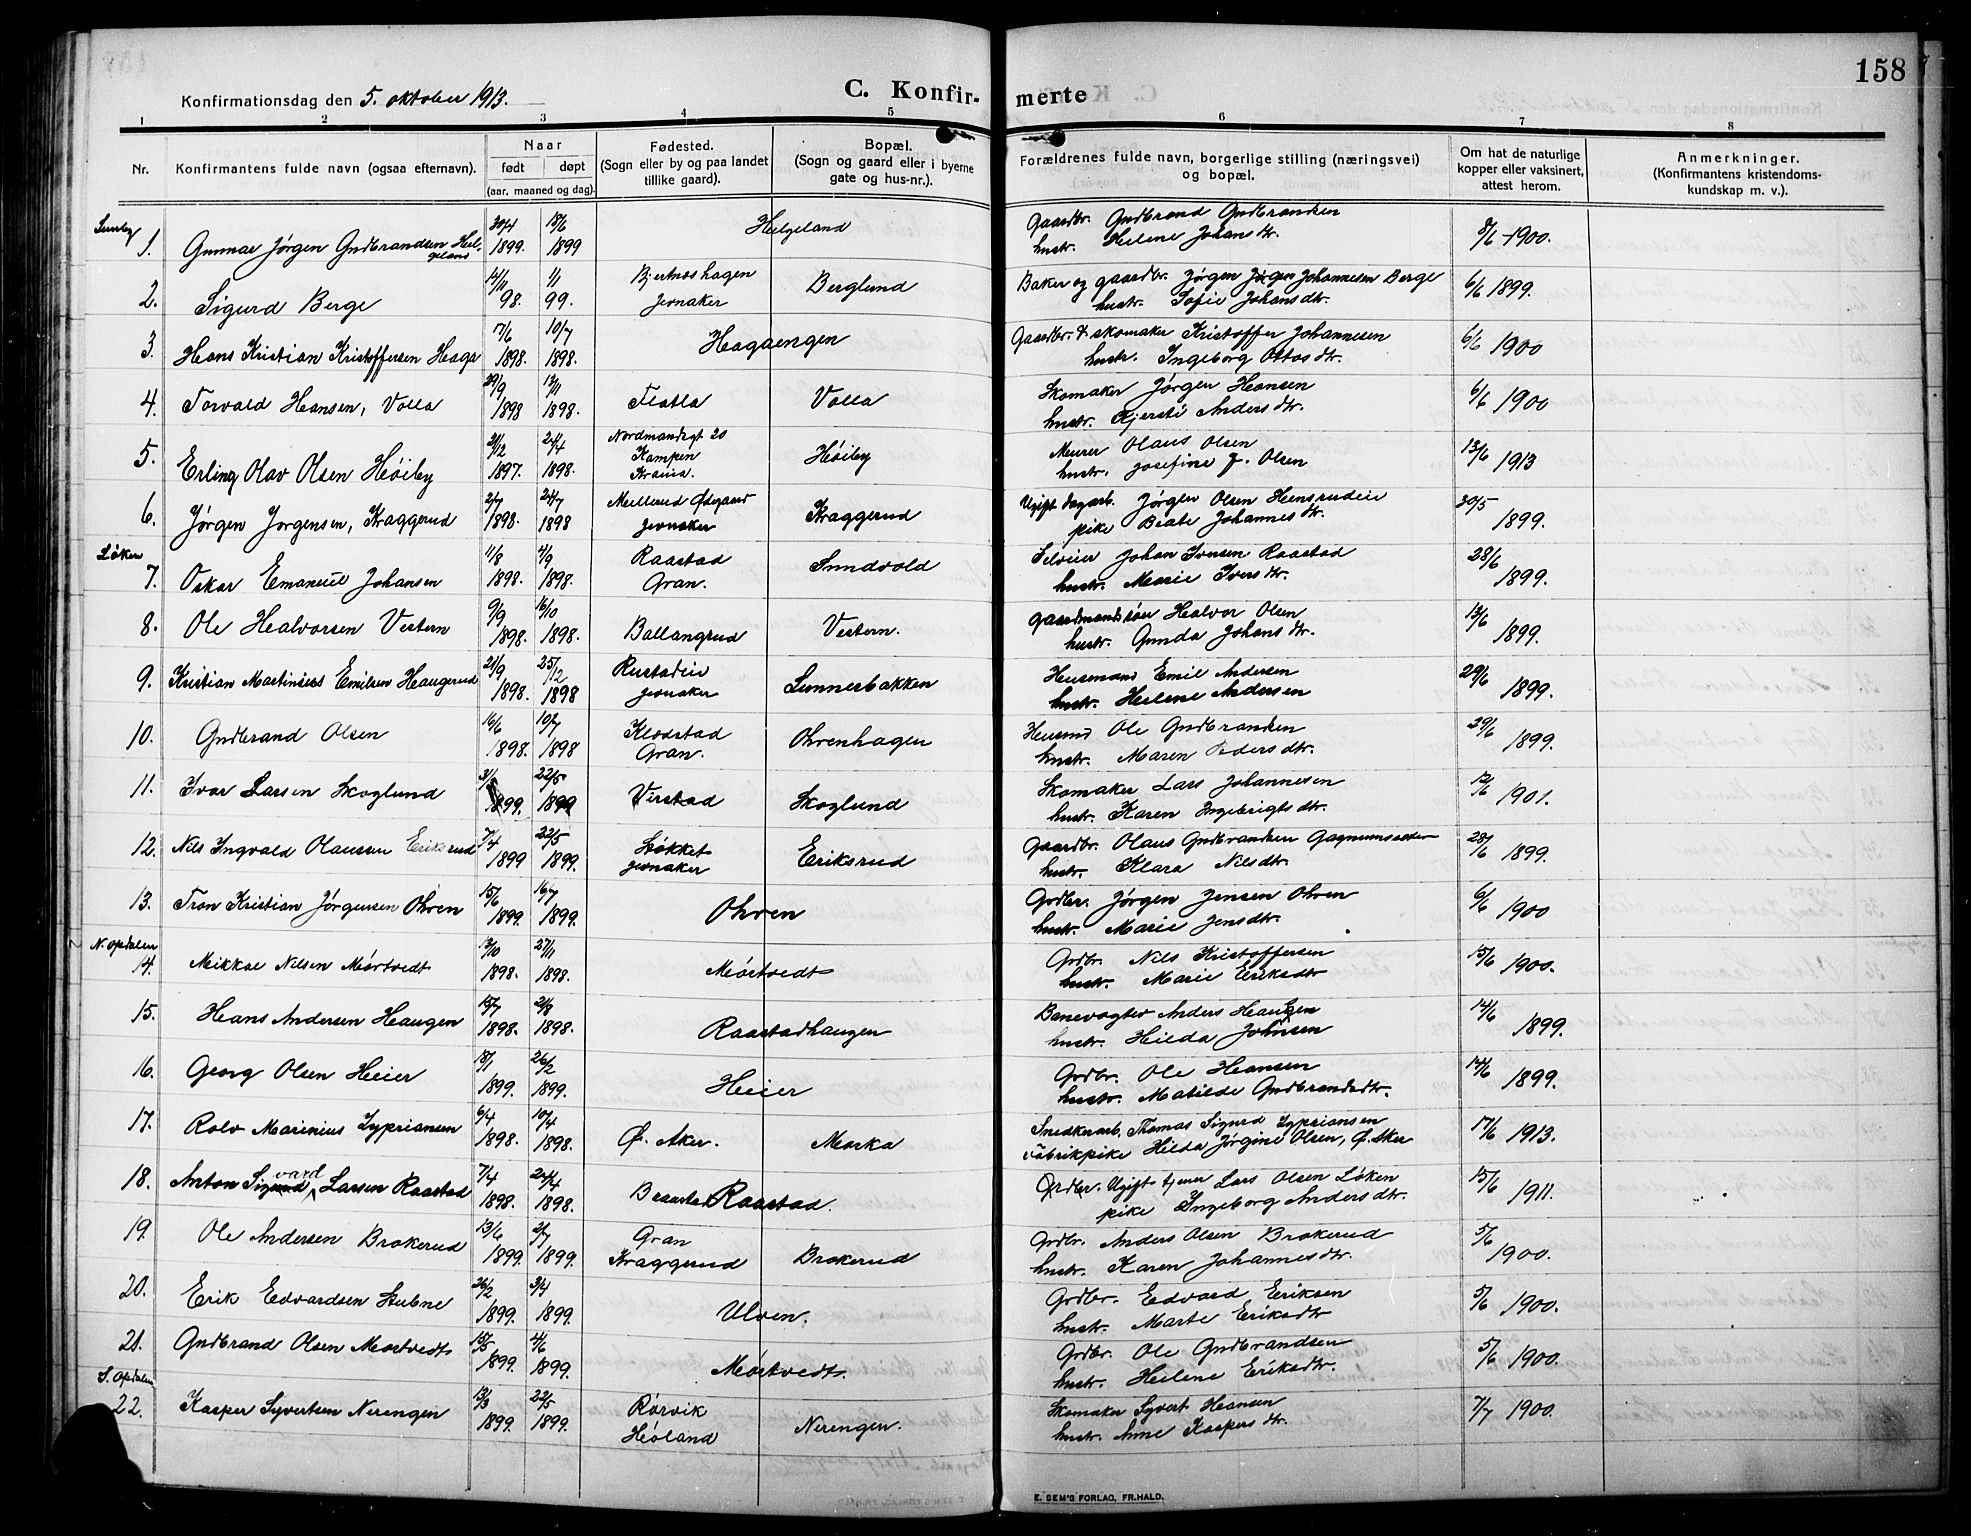 158
Konfirmationsdag den 5. oktober 1913.
C. Konfir-merte
1 2 3 4 5 6 7 8
Nr.
Konfirmantens fulde navn (ogsaa efternavn).
Naar
født døpt
(aar, maaned og dag).
Fødested.
(Sogn eller by og paa landet
tillike gaard).
Bopæl.
(Sogn og gaard eller i byerne
gate og hus-nr.).
Forældrenes fulde navn, borgerlige stilling (næringsvei)
og bopæl.
Om hat de naturlige
kopper eller vaksinert,
attest herom.
Anmerkninger.
(Konfirmantens kristendoms-
kundskap m. v.).
1. Gunnar Jørgen Gudbrandsen Hel-
geland
30/4 1899. 18/6 1899
Helgeland
Gaardbr. Gudbrand Gudbrandsen
hustr. Helene Johansdtr.
1900.
2. Sigurd Berge
14/11 98. 1/1 99.
Bjertneshagen
Jevnaker
Berglund
Baker og gaardbr. Jørgen Johannesen Berge
hustr. Sofie Johansdtr.
6/6 1899.
3. Hans Kristian Kristoffersen Haga
17/6 1898. 10/7 1898.
Hagaengen
Gaardbr. & skomaker Kristoffer Johannesen
hustr. Ingeborg Ottosdtr.
6/6 1900
4. Torvald Hansen, Volla
29/9 1898 13/11 1898.
Flatla
Volla
Skomaker Jørgen Hansen
hustr. Kjersti Andersdtr.
6/6 1900
5. Erling Olav Olsen Høiby
21/12 1897. 24/4 1898.
Nordmandsgt 20
Kampen
Krania.
Høiby
Murer Olaus Olsen
hustr. Josefine J. Olsen
13/6 1913
6. Jørgen Jørgensen, Kraggerud
2/7 1898. 24/7 1898
Mellerud Ødegaard
Jevnaker
Kraggerud
Ugift dagarb. Jørgen Olsen Hensrudeie
pike Beate Johannesdtr.
30/5 1899.
Løken
7. Oskar Emanuel Johansen
11/8 1898. 4/9 1898.
Raastad
Gran.
Sundvold
Selveier Johan Iversen Raastad
hustr. Marie Iversdtr.
28/6 1899.
8. Ole Halvorsen Vestern
9/9 1898. 16/10 1898.
Ballangrud
Vestern.
gaardmandssøn Halvor Olsen
hustr. Gunda Johansdtr.
13/6 1899.
9. Kristian Martinius Emilsen Haugerud
21/9 1898. 25/12 1898
Rustadeie
Jevnaker
Sunnerbakken
Husmand Emil Andersen
hustr. Helene Andersen
29/6 1899.
10. Gudbrand Olsen
16/6 1898. 10/7 1898
Klodstad
Gran.
Ohrenhagen
Husmd Ole Gudbrandsen
hustr. Maren Pedersdtr.
29/6 1899.
11. Ivar Larsen Skoglund
1899. 22/5 1899
Verstad
Skoglund
Skomaker Lars Johannesen
hustr. Karen Ingebrigtsdtr.
12/6 1901.
12. Nils Ingvald Olaussen Eriksrud
7/4 1899 22/5 1899.
Løkket
Jevnaker
Eriksrud
Gaardbr. Olaus Gudbrandsen
hustr. Klara Nilsdtr.
28/6 1899.
13. Tron Kristian Jørgensen Ohren
15/6 1899. 16/7 1899.
Ohren
Grdbr. Jørgen Jensen Ohren
hustr. Marie Jensdtr.
6/6 1900
N. Opdalen
14. Mikkal Nilsen Mørtvedt
13/10 1898. 27/11 1898.
Mørtvedt
Grdbr. Nils Kristoffersen
hustr. Marie Eriksdtr
15/6 1900.
15. Hans Andersen Haugen
15/7 1898. 21/8 1898.
Raastadhaugen
Banevogter Anders Haugen
hustr. Hilda Johnsen
14/6 1899.
16. Georg Olsen Heier
18/1 1899. 26/2 1899.
Heier
Grdbr. Ole Hansen
hustr. Matilde Gudbrandsdtr.
14/6 1899.
17. Rolv Marinius Zypriansen
6/4 1898. 10/4 1898.
Ø. Aker.
Marka
Snedkerarb. Thomas Sigurd Zypriansen
fabrikpike Hilda Jørgine Olsen, Ø. Aker
17/6 1913.
18. Anton Sigvard Larsen Raastad
7/4 1898. 24/4 1898.
Raastad.
Grdbr. Ugift tjener Lars Olsen Løken
pike Ingeborg Andersdtr.
15/6 1911.
19. Ole Andersen Brokerud
13/6 1899. 2/7 1899.
Gran
Kraggerud
Brokerud
Grdbr. Anders Olsen Brokerud
hustr. Karen Johannesdtr.
5/6 1900.
20. Erik Edvardsen Stubne
26/2 1899. 3/4 1899.
Ulven.
Grdbr. Edvard Eriksen
hustr. Marte Eriksdtr
5/6 1900.
21. Gudbrand Olsen Mørtvedt
15/5 1899. 4/6 1899.
Mørtvedt.
Grdbr. Ole Gudbrandsen
hustr. Helene Eriksdtr.
5/6 1900.
S. Opdalen
22. Kasper Syvertsen Nerengen
13/3 1899. 22/5 1899.
Rørvik
Høland
Nerengen.
Skomaker Syvert Hansen
hustr. Anne Kaspersdtr.
7/7 1900.
E. SEM'S FORLAG, FR.HALD.